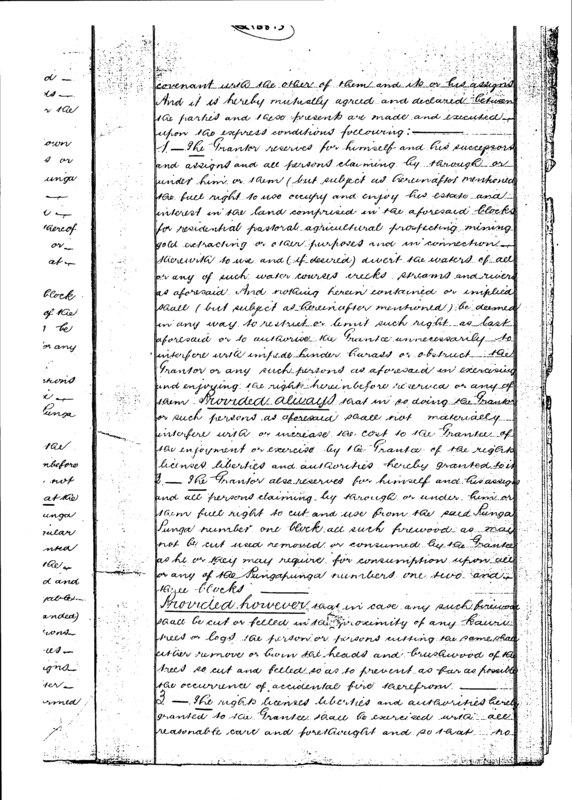 covenant with the other of them and its or his assigns
And it is hereby mutually agreed and declared between
the parties and these presents are made and executed
upon the express conditions following:
1 — The Grantor reserves for himself and his successors
and assigns and all persons claiming by through or
under him or them (but subject as hereinafter mentioned
the full right to use occupy and enjoy his estate and
interest in the land comprised in the aforesaid blocks
for residential pastoral agricultural prospecting mining
gold extracting or other purposes and in connection
therewith to use and (if desired) divert the waters of all
or any of such water courses creeks streams and rivers
as aforesaid And nothing herein contained or implied
shall (but subject as hereinafter mentioned) be deemed
in any way to restrict or limit such right as last
aforesaid or to authorise the Grantee unnecessarily to
interfere with impede hinder harass or obstruct the
Grantor or any such persons as aforesaid in exercising
and enjoying the rights hereinbefore reserved or any of
them Provided always that in so doing the Grantor
or such persons as aforesaid shall not materially
interfere with or increase the cost to the Grantee of
the enjoyment or exercise by the Grantee of the rights
licenses liberties and authorities hereby granted to it
2 — The Grantor also reserves for himself and his assigns
and all persons claiming by through or under him or
them full right to cut and use from the said Punga
Punga number one block all such firewood as may
not be cut used removed or consumed by the Grantee
as he or they may require for consumption upon all
or any of the Pungapunga numbers one two and
three blocks
Provided however that in case any such firewood
shall be cut or felled in the proximity of any Kauri
trees or logs the person or persons cutting the same shall
either remove or burn the heads and brushwood of the
trees so cut and felled so as to prevent as far as possible
the occurrence of accidental fire therefrom
3 — The rights licenses liberties and authorities hereby
granted to the Grantee shall be exercised with all
reasonable care and forethought and so that no
d —
r the
own
s or
unga
thereof
or —
at —
block
of the
be
or any
Punga
the
nbefore
not
at the
unga
the
d and
anded)